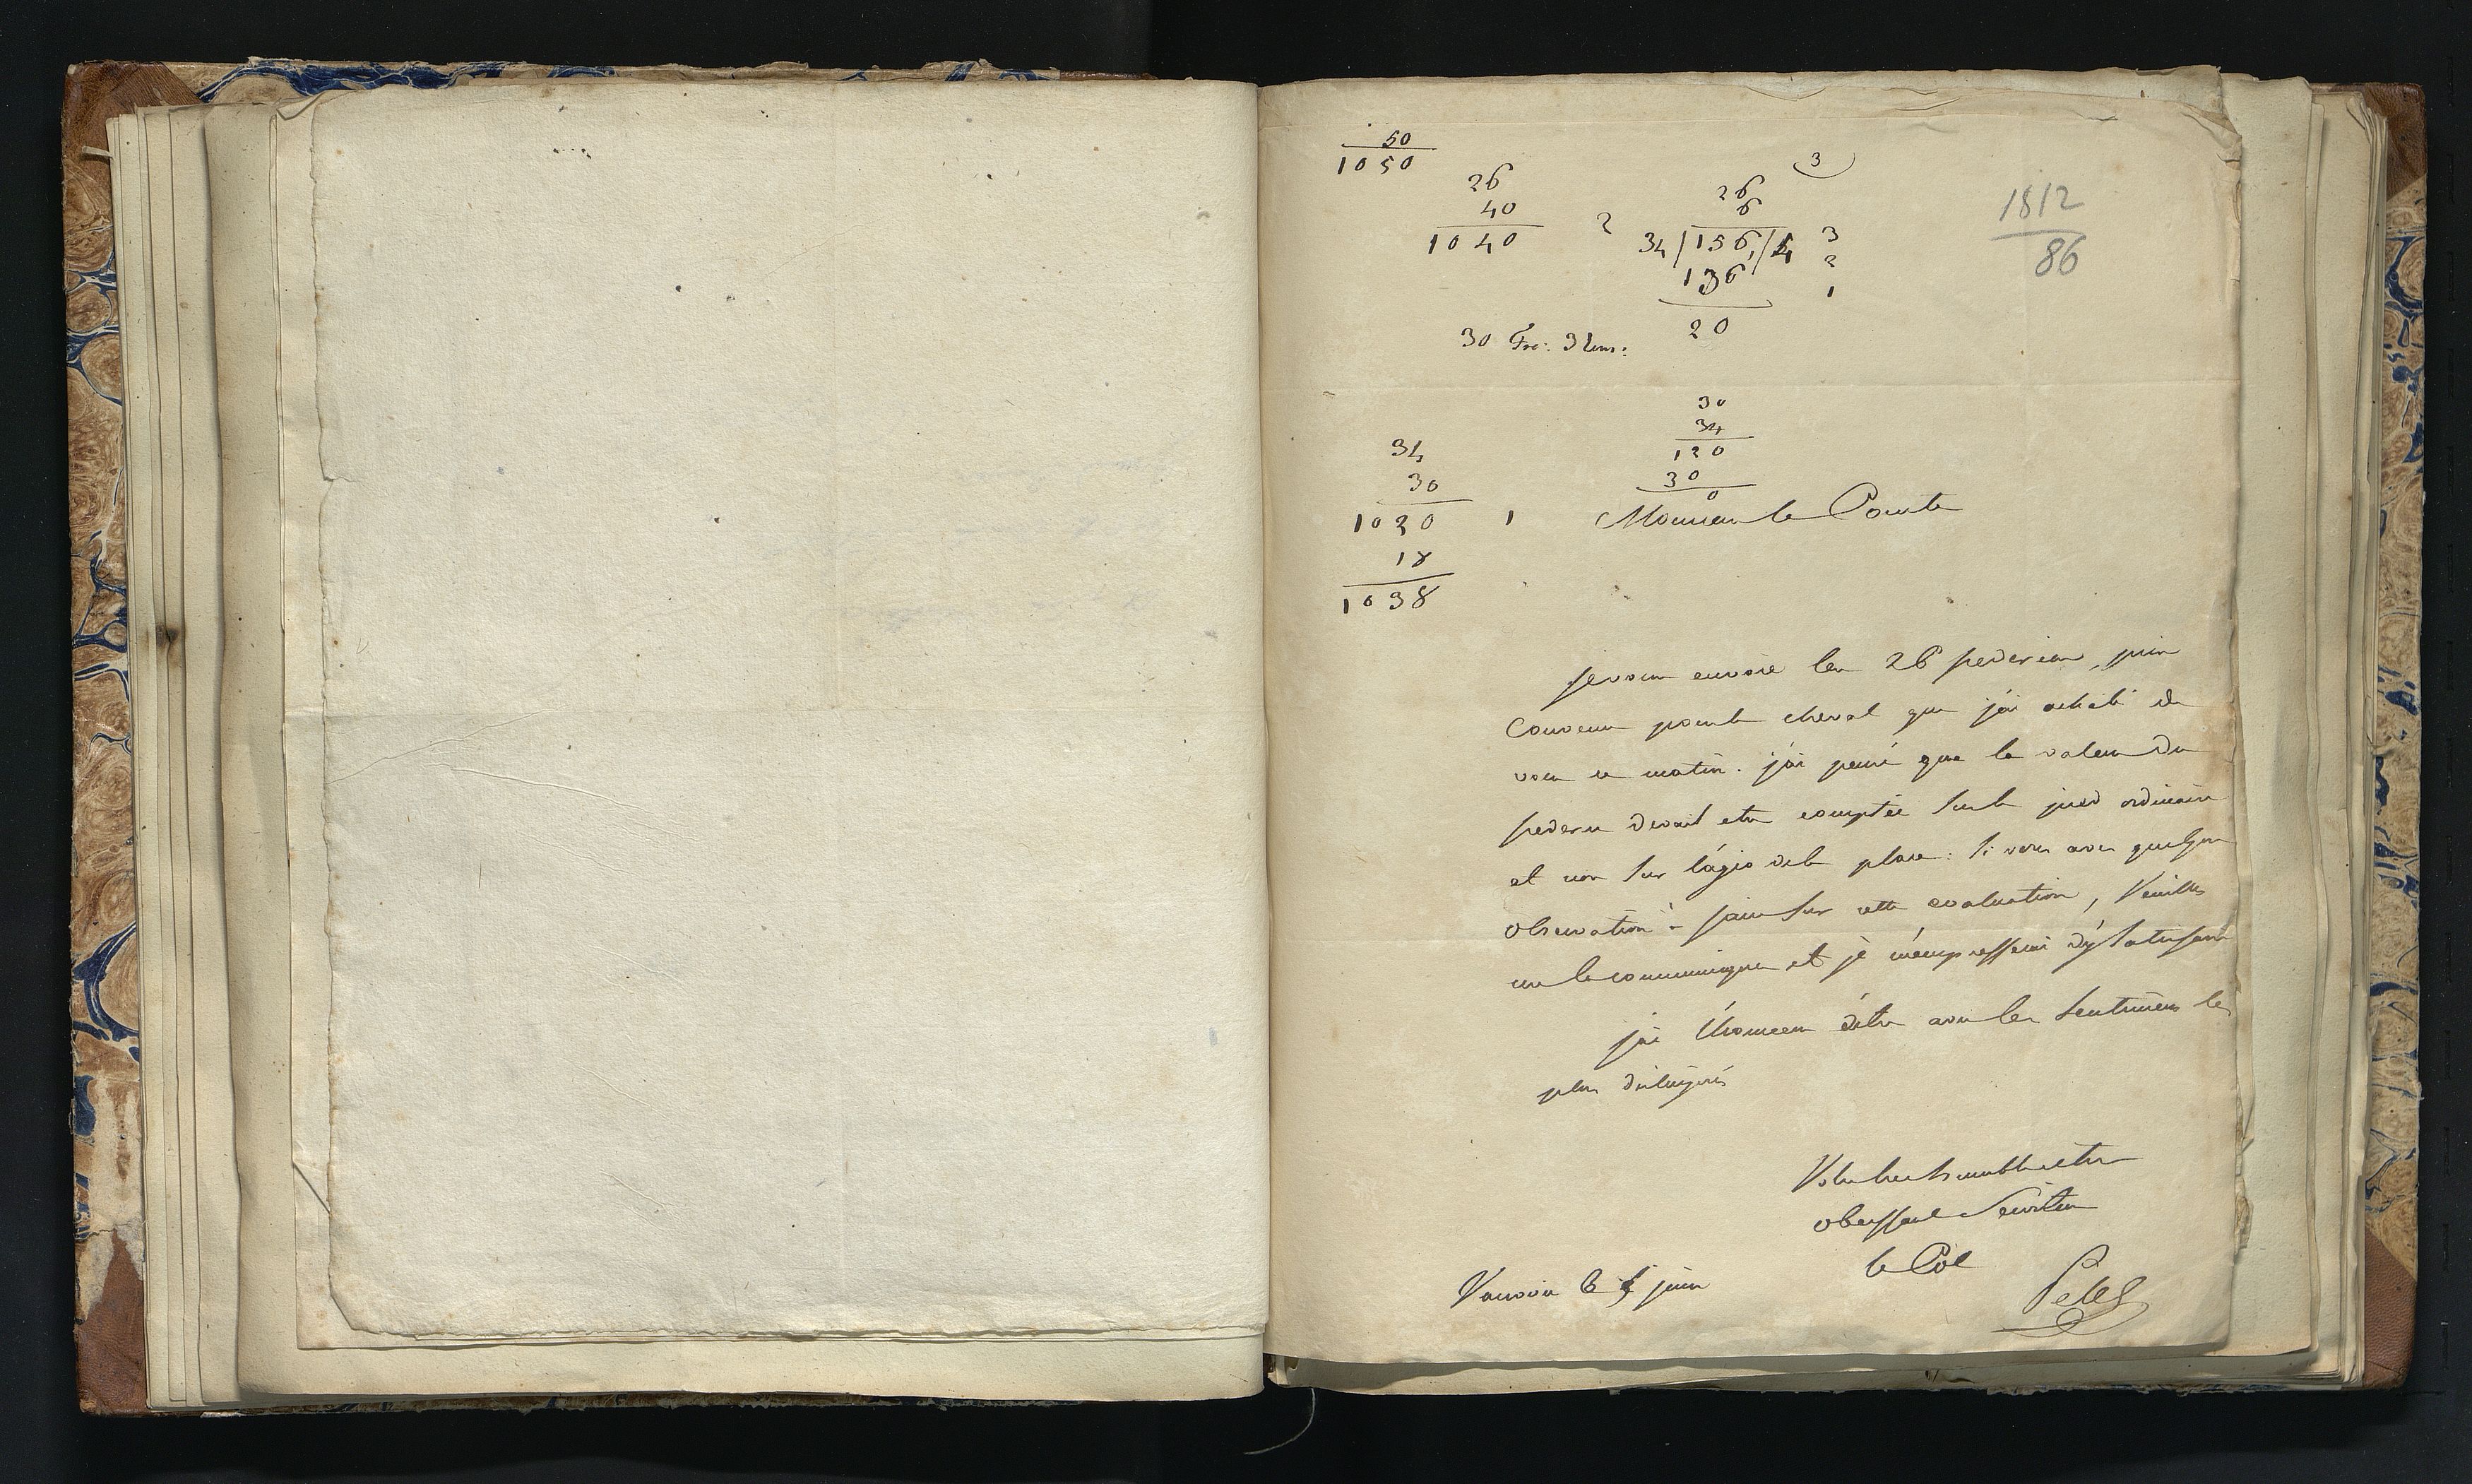 50
1050
26
40
1040
2
3
26
6
34 | 156 | 4
136
20
3
2
1
1812
86
30 Fr: 3
30
34
120
30
0
34
30
1020
18
1038
1
Monsieur le Comte
je vous envoie les 26 frederics, prix
convenu pour le cheval que j'ai acheté de
vous ce matin. j'ai pensé que la valeur du
frederic devait etre comptée sur le pied ordinaire
et non sur l'agio de la place: si vous avez quelque
observation à faire sur cette evaluation, Veuillez
me la communiquer et je m'empresserai d'y satisfaire
j'ai l'honneur d'etre avec les sentimens les
plus distingués
Votre tres humble et tres
obeissant Serviteur
le Col
Varsovie le 5 juin